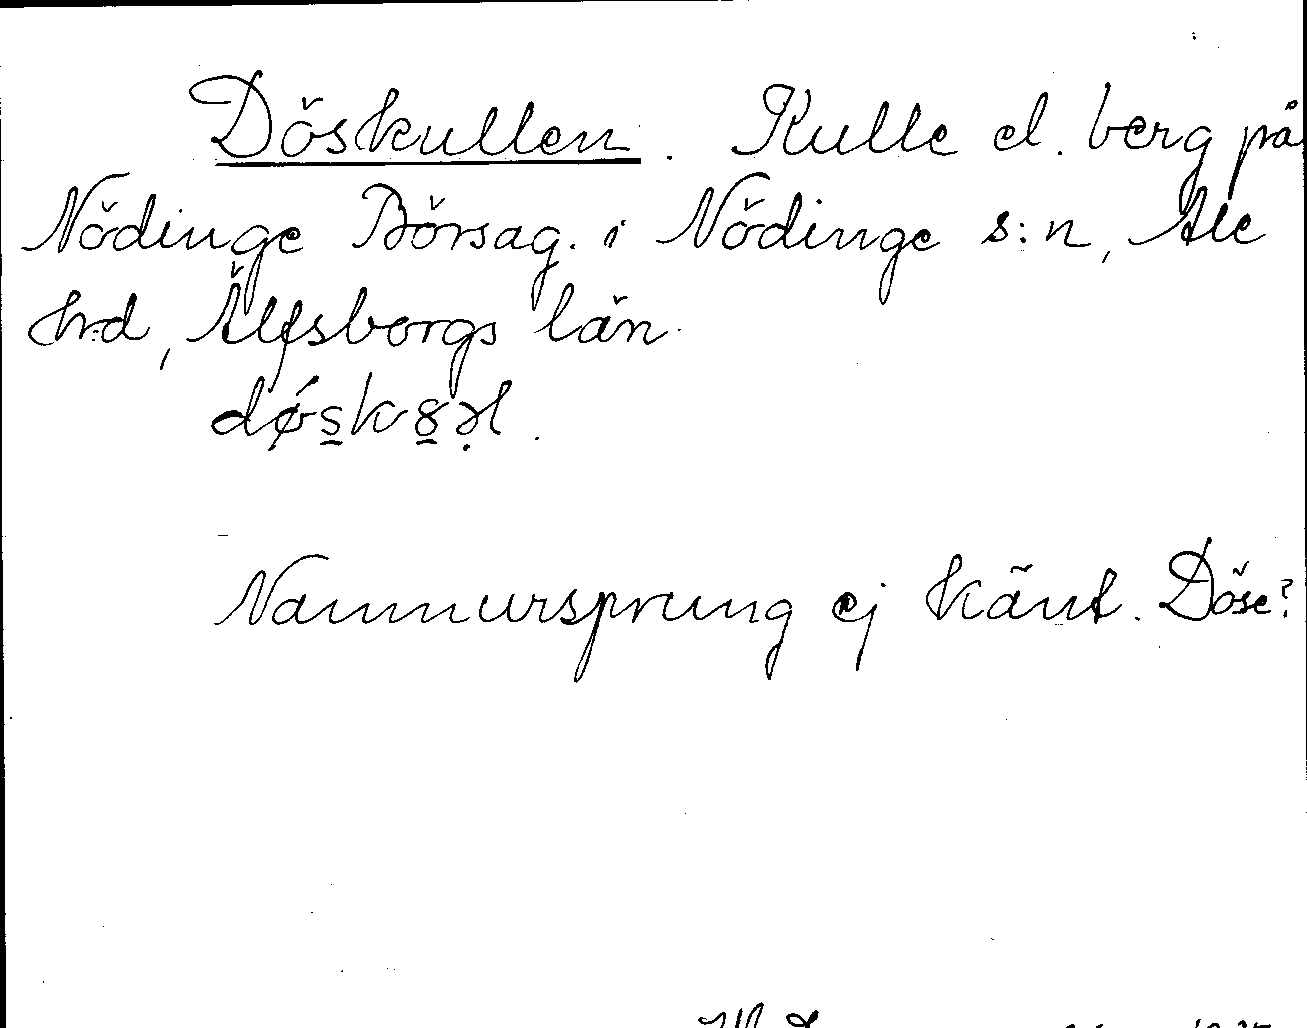 Döskullen. Kulle el. berg på
Nödinge Börsag. i Nödinge s:n, Ale
hrd, Älfsborgs län.
Namnursprung ej känt. Döse?